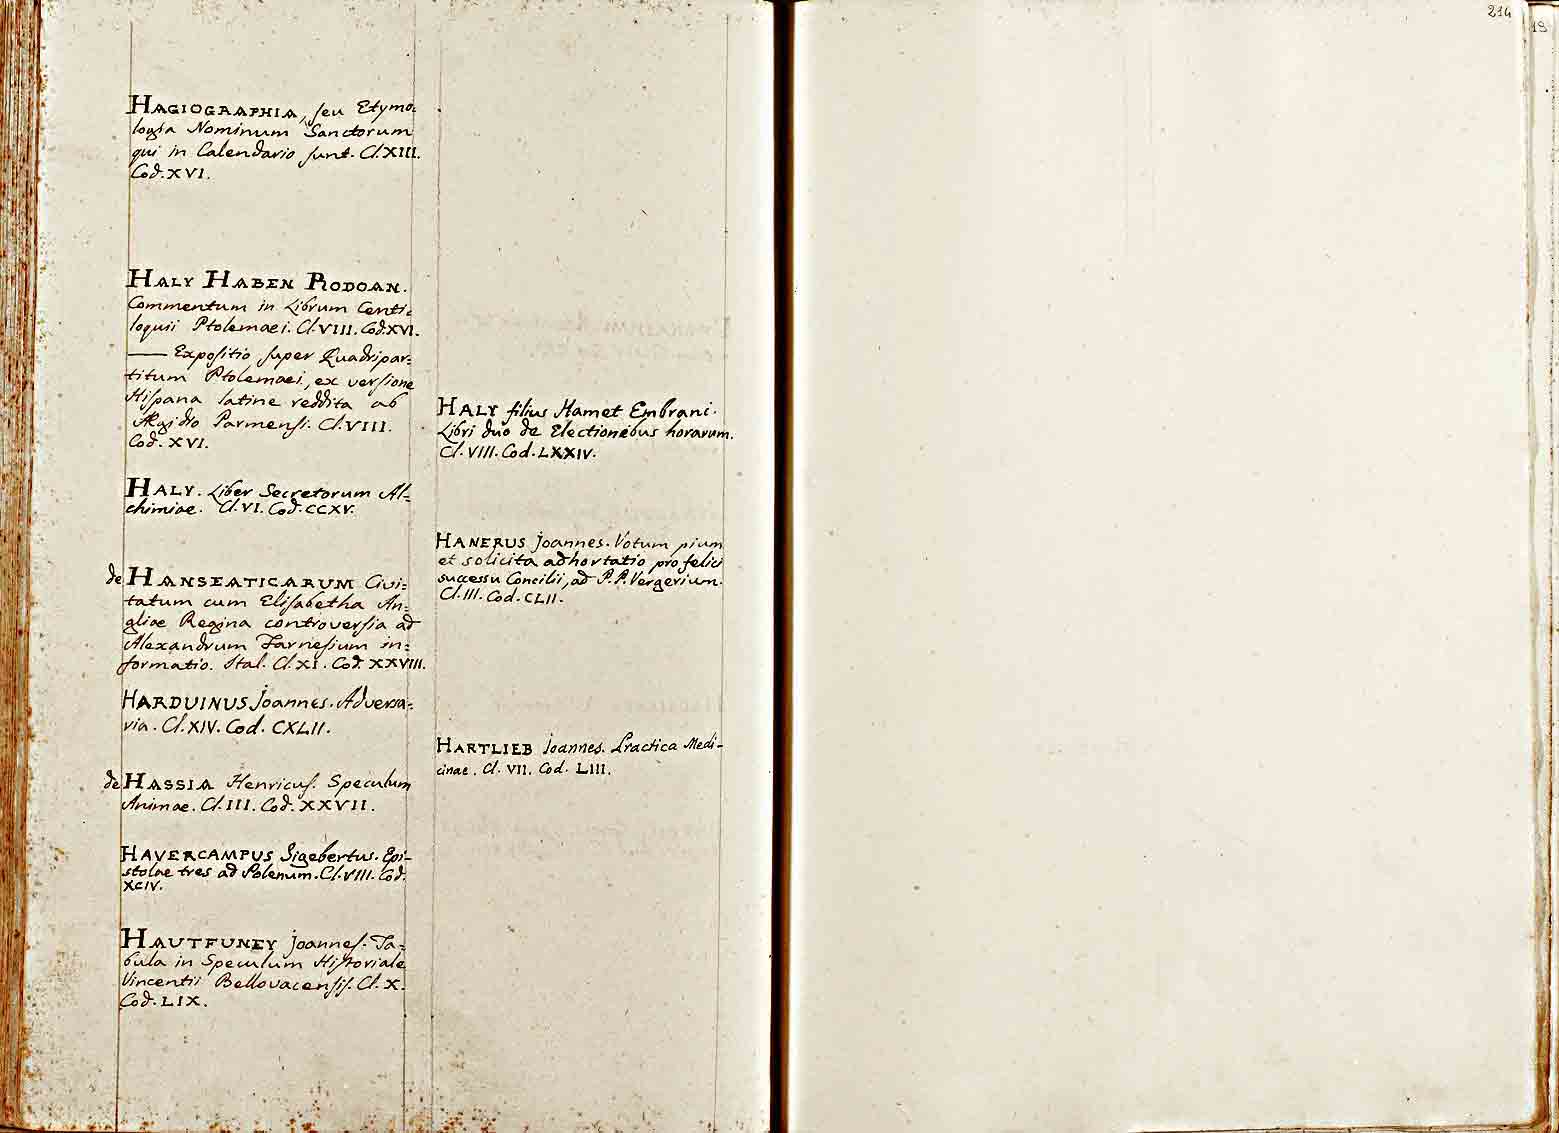 HAGIOGRAPHIA, seu Etymo=
logia Nominum Sanctorum
qui in Calendario sunt. Cl.XIII.
Cod.XVI.
HALY HABEN RODOAN.
Commentum in Librum Centi=
loquii Ptolemaei. Cl.VIII. Cod.XVI.
—— Expositio super Quadripar=
titum Ptolemaei, ex versione
Hispana latine reddita ab
Aegidio Parmensi. Cl.VIII.
Cod. XVI.
HALY. Liber Secretorum Al=
chimiae. Cl.VI. Cod.CCXV.
de HANSEATICARUM Civi=
tatum cum Elisabetha An=
gliae Regina controversia ad
Alexandrum Farnesium in=
formatio. Ital. Cl.XI. Cod. XXVIII.
HARDUINUS Joannes. Adversa=
ria. Cl.XIV. Cod. CXLII.
de HASSIA Henricus. Speculum
Animae. Cl.III. Cod. XXVII.
HAVERCAMPUS Sigebertus. Epi=
stolae tres ad Polenum. Cl.VIII. Cod.
XCIV.
HAUTFUNEY Joannes. Ta=
bula in Speculum Historiale
Vincentii Bellovacensis. Cl. X.
Cod. LIX.
HALY filius Hamet Embrani.
Libri duo de Electionibus horarum.
Cl. VIII. Cod. LXXIV.
HANERUS Joannes. Votum pium
et solicita adhortatio pro felici
successu Concilii, ad P.P. Vergerium.
Cl. III. Cod. CLII.
HARTLIEB Joannes. Practica Medi-
cinae. Cl. VII. Cod. LIII.
214